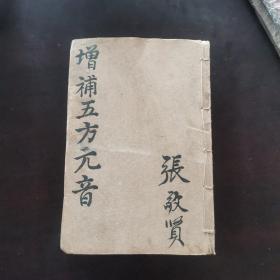 張敬賢
增補五方元音